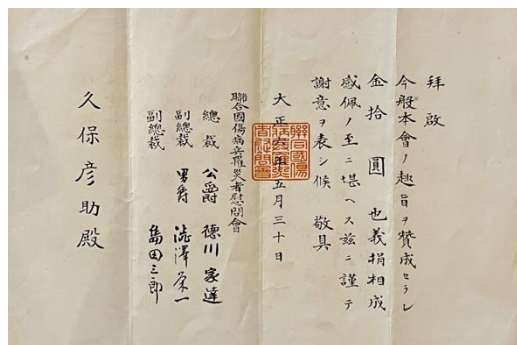 拜啟
今般本會ノ趣旨ヲ賛成セラレ
金拾圓也義捐相成
感佩ノ至ニ堪ヘス玆ニ謹テ
謝意ヲ表シ候 敬具
大正六年五月三十日
聯合國傷病兵罹災者慰問會
總裁 公爵 德川家達
副總裁 男爵 澁澤榮一
副總裁 島田三郎
久保彦助殿